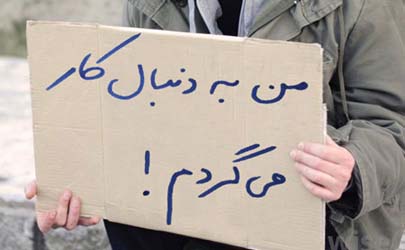 من به دنبال کار
می گردم !